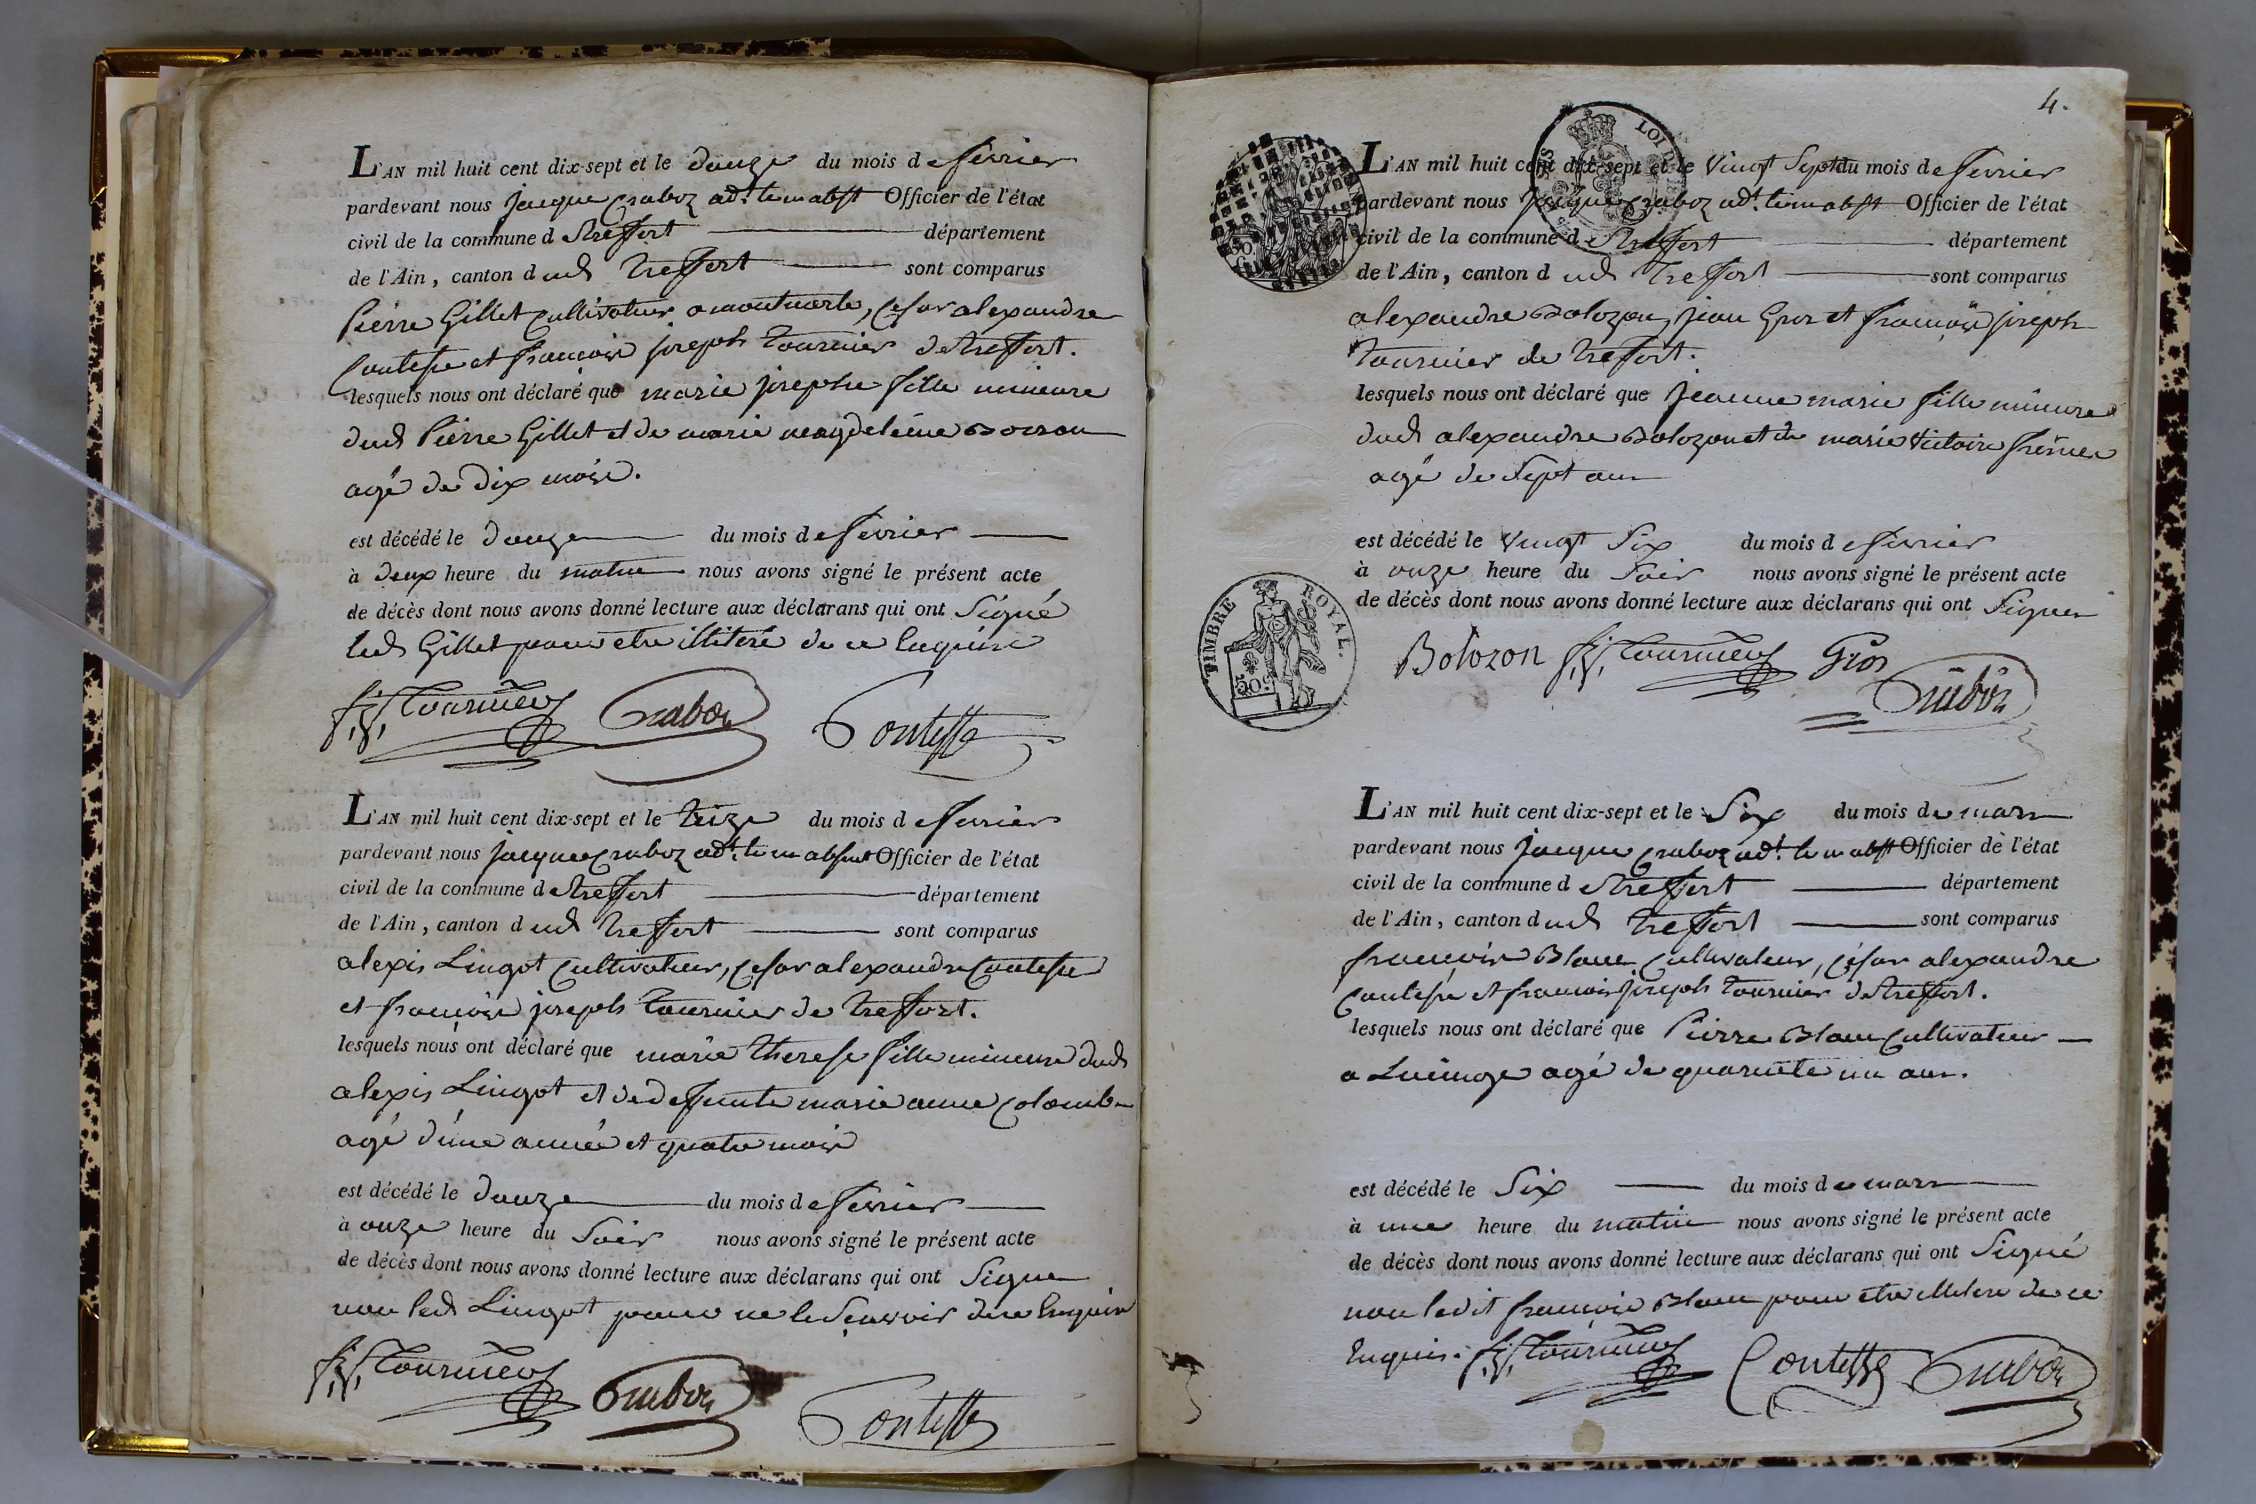 L'AN mil huit cent dix-sept et le douze du mois de fevrier
pardevant nous jacque Craboz adt. le m abst Officier de l'état
civil de la commune d etreffort département
de l'Ain, canton d ud treffort sont comparus
Pierre Gillet Cultivateur a montmerle, Cesar alexandre
Contesse et francois joseph tournier detreffort.
lesquels nous ont déclaré que marie josephe fille mineure
dud Pierre Gillet et de marie magdeleine
agé de dix mois.
est décédé le douze du mois de fevrier
à deux heure du matin nous avons signé le présent acte
de décès dont nous avons donné lecture aux déclarans qui ont Signé
led Gillet pour etre illiteré de ce Enquis
fs. js. tournier Craboz Contesse
L'AN mil huit cent dix-sept et le treize du mois d e fevrier
pardevant nous jacque Craboz adt. le m absent Officier de l'état
civil de la commune d etreffort département
de l'Ain, canton d ud treffort sont comparus
alexis Lingot Cultivateur, Cesar alexandre Contesse
et francois joseph tournier de treffort.
lesquels nous ont déclaré que marie therese fille mineure dud
alexis Lingot et de deffunte marie anne Colomb
agé d'une année et quatre mois
est décédé le douze du mois de fevrier
à onze heure du Soir nous avons signé le présent acte
de décès dont nous avons donné lecture aux déclarans qui ont Signé
non led Lingot pour ne le Scavoir de ce Enquis
fs. js. tournier Craboz Contesse
4.
L'AN mil huit cent dix-sept et le Vingt Sept du mois de fevrier
pardevant nous jacque Craboz adt. le m abst Officier de l'état
civil de la commune d etreffort département
de l'Ain, canton d ud treffort sont comparus
alexandre Bolozon, jean Gros et francois joseph
tournier de treffort.
lesquels nous ont déclaré que jeanne marie fille mineure
dud alexandre Bolozon et de marie Victoire
agé de Sept ans
est décédé le Vingt Six du mois d e fevrier
à onze heure du Soir nous avons signé le présent acte
de décès dont nous avons donné lecture aux déclarans qui ont Signé
TIMBRE ROYAL.
50c
Bolozon fs. js. tournier Gros
Craboz
L'AN mil huit cent dix-sept et le Six du mois de mars
pardevant nous jacque Craboz adt. le m abst Officier de l'état
civil de la commune d etreffort département
de l'Ain, canton d ud treffort sont comparus
francois Blanc Cultivateur, Césàr alexandre
Contesse et francois joseph tournier detreffort.
lesquels nous ont déclaré que Pierre Blanc Cultivateur
a agé de quarente un ans.
est décédé le Six du mois de mars
à une heure du matin nous avons signé le présent acte
de décès dont nous avons donné lecture aux déclarans qui ont Signé
non ledit francois Blanc pour etre illiteré de ce
Enquis. fs. js. tournier Contesse Craboz